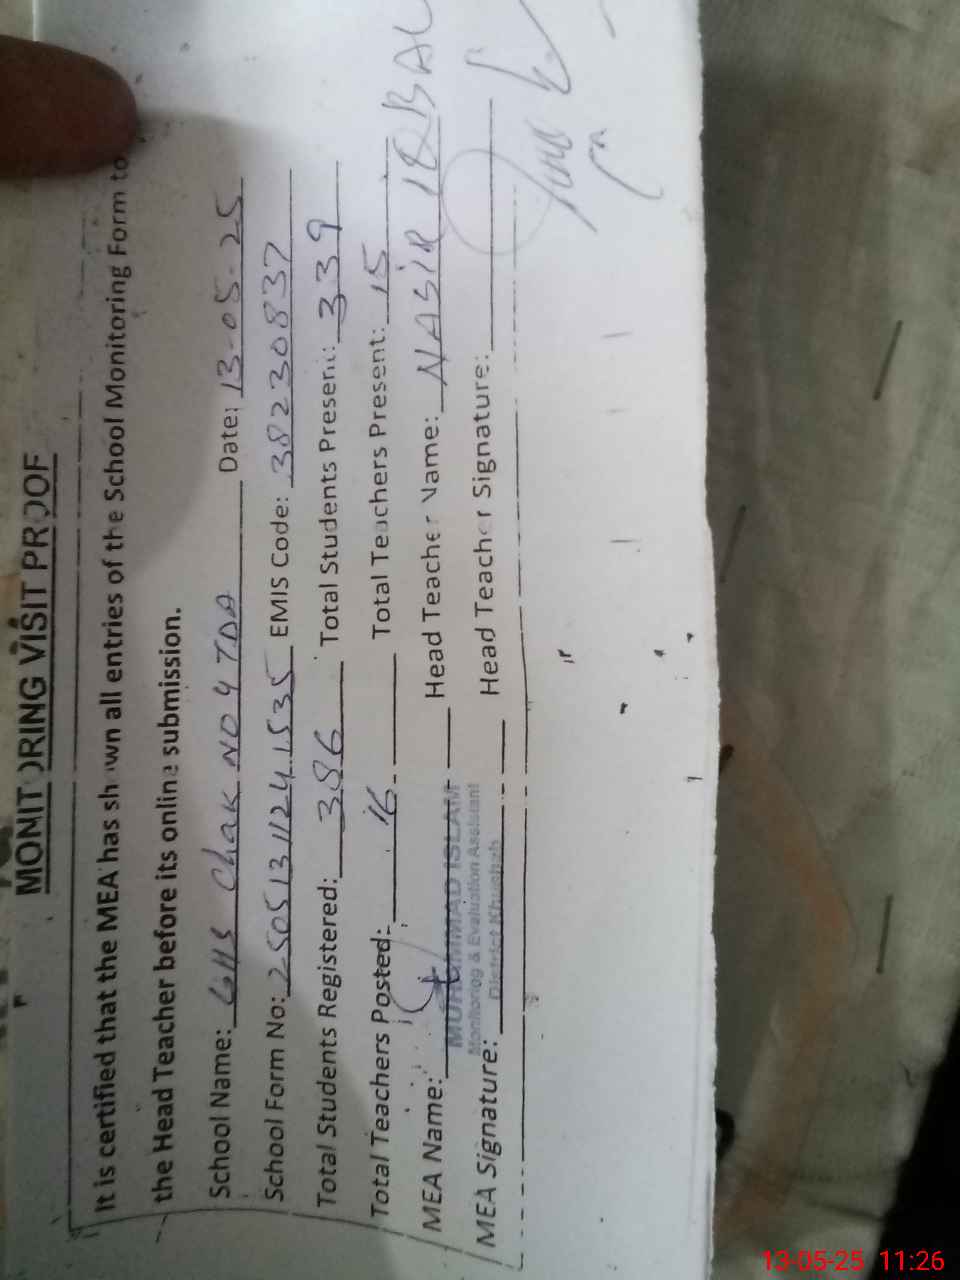 MONITORING VISIT PROOF
It is certified that the MEA has shown all entries of the School Monitoring Form to
the Head Teacher before its online submission.
School Name: GHS Chak NO 4 TDA Date: 13-05-25
School Form No: 2505131124 1535 EMIS Code: 38230837
Total Students Registered: 386 Total Students Present: 339
Total Teachers Posted: 16 Total Teachers Present: 15
MEA Name: Head Teacher Name: NASIR IQBAL
MUHAMMAD ISLAM
Monitoring & Evaluation Assistant
District Khushab
MEA Signature: Head Teacher Signature:
13-05-25 11:26